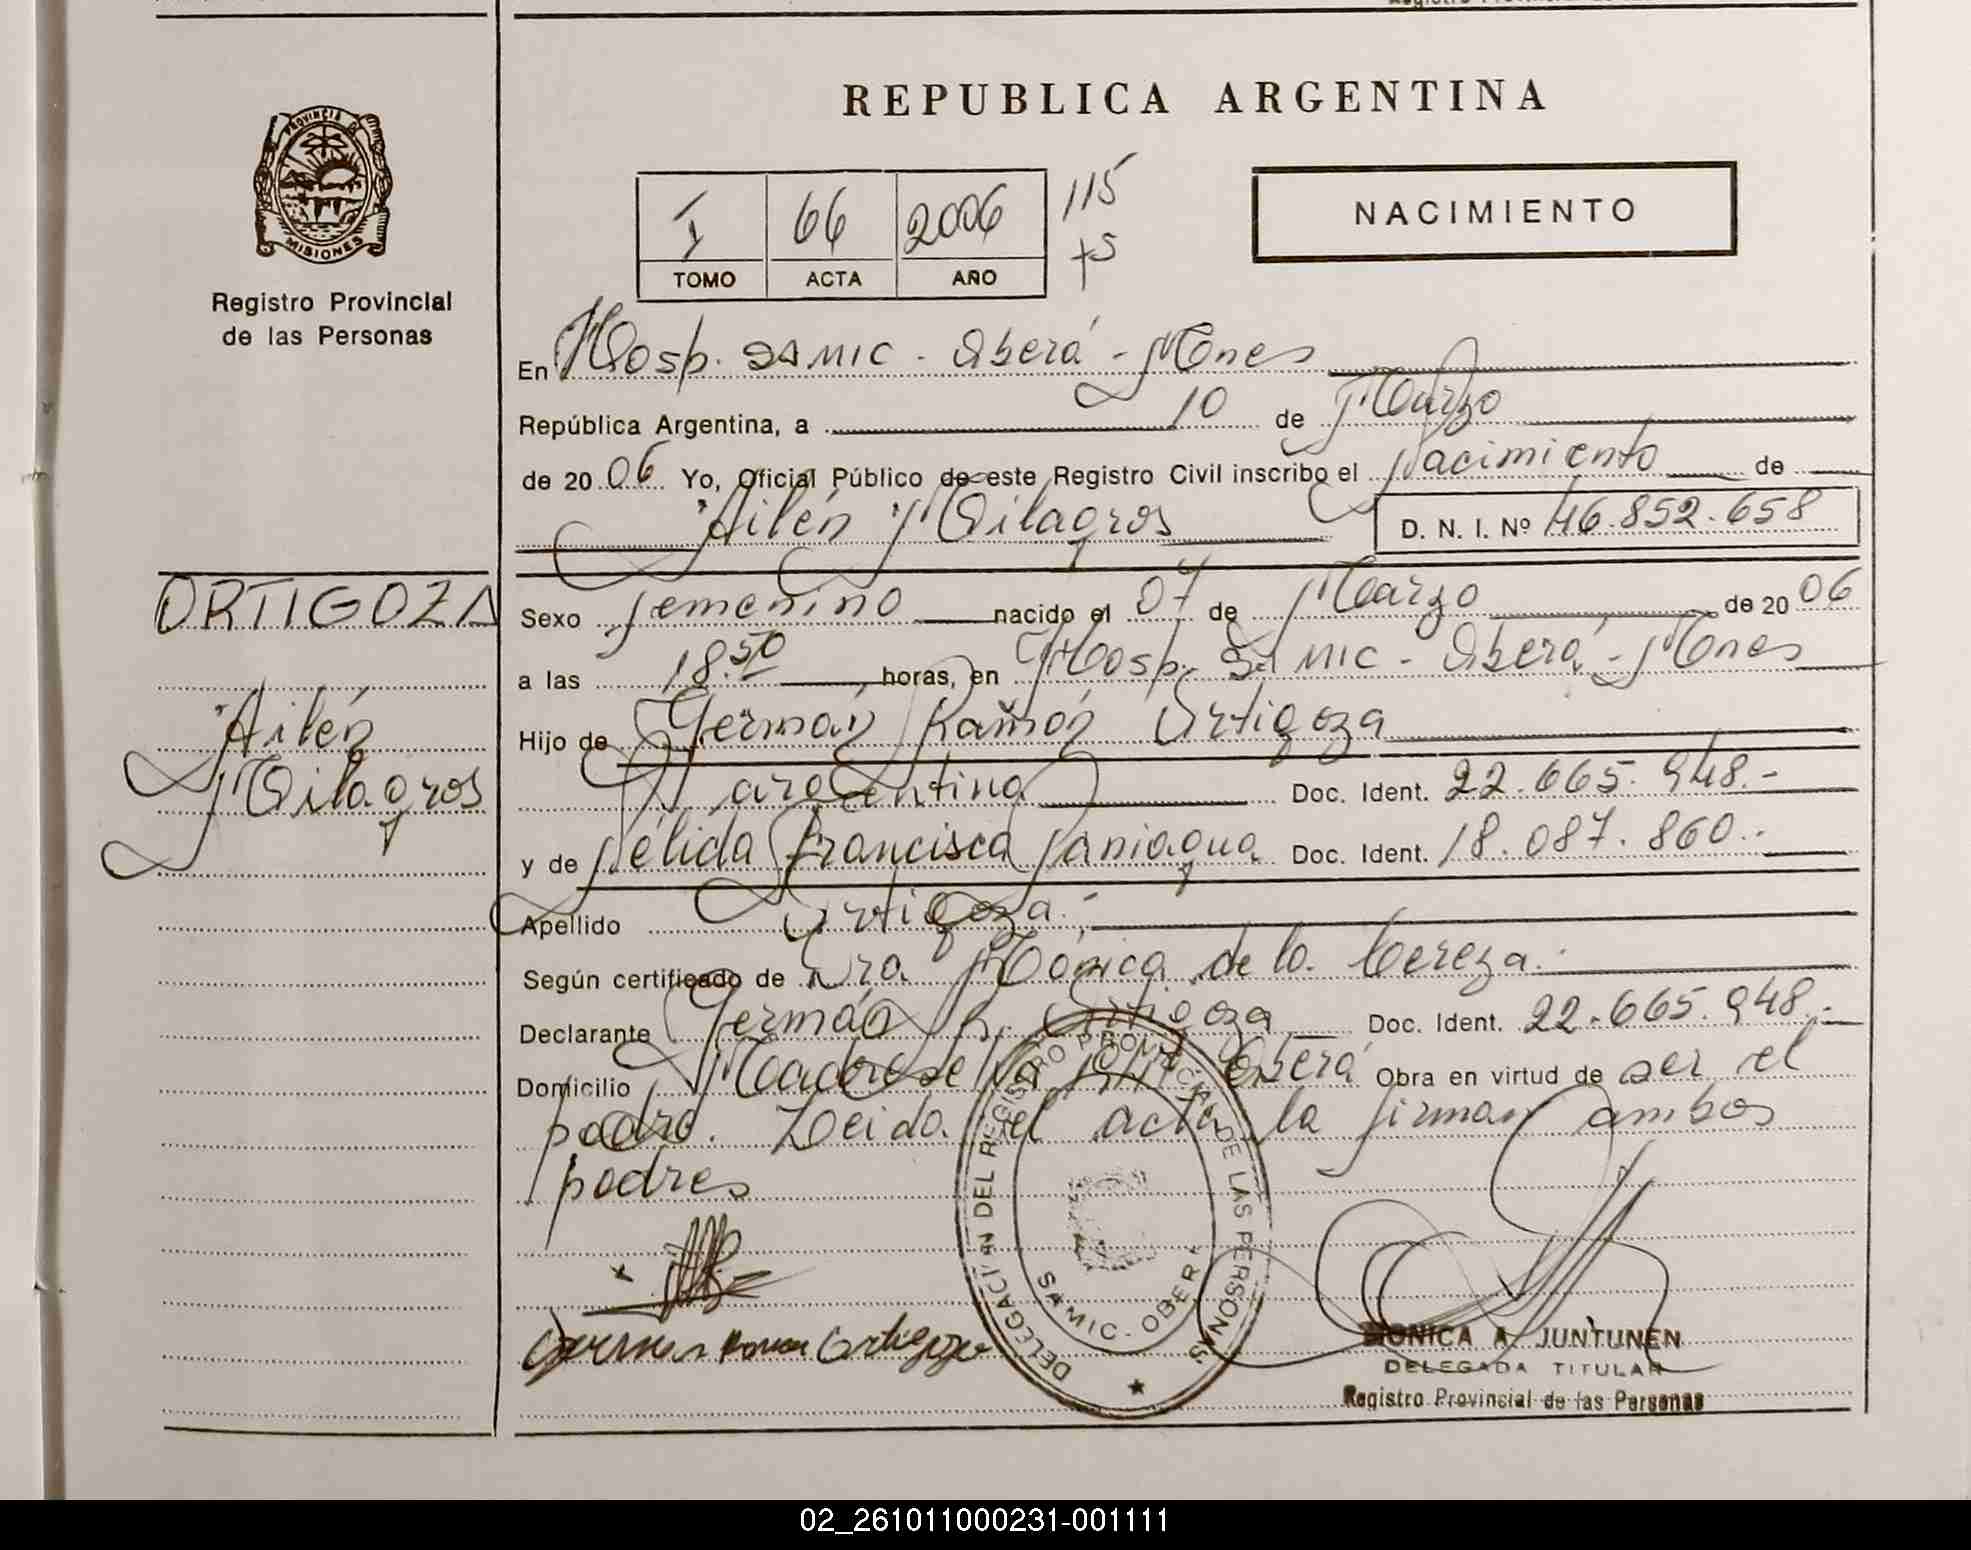 REPUBLICA ARGENTINA
PROVINCIA DE
MISIONES
Registro Provincial
de las Personas
I 66 2006 115
TOMO ACTA AÑO
NACIMIENTO
En Hosp. SAMIC - Oberá - Mnes
República Argentina, a 10 de Marzo
de 20 06 Yo, Oficial Público de este Registro Civil inscribo el Nacimiento de
Ailén Milagros D. N. I. Nº 46.852.658
ORTIGOZA
Ailén
Milagros
Sexo femenino nacido el 07 de Marzo de 20 06
a las 18.50 horas, en Hosp. SAMIC - Oberá - Mnes
Hijo de Germán Ramón Ortigoza
argentina Doc. Ident. 22.665.948.-
y de Nélida Francisca Paniagua Doc. Ident. 18.087.860.-
Apellido Ortigoza.-
Según certificado de Dra Mónica de la Cereza.-
Declarante Germán R. Ortigoza Doc. Ident. 22.665.948.-
Domicilio Oberá Obra en virtud de ser el
padre. Leida el acta la firman ambos
padres
German Ramon Ortigoza
DELEGACIÓN DEL REGISTRO PROVINCIAL DE LAS PERSONAS
SAMIC - OBERA
MONICA A. JUNTUNEN
DELEGADA TITULAR
Registro Provincial de las Personas
02_261011000231-001111